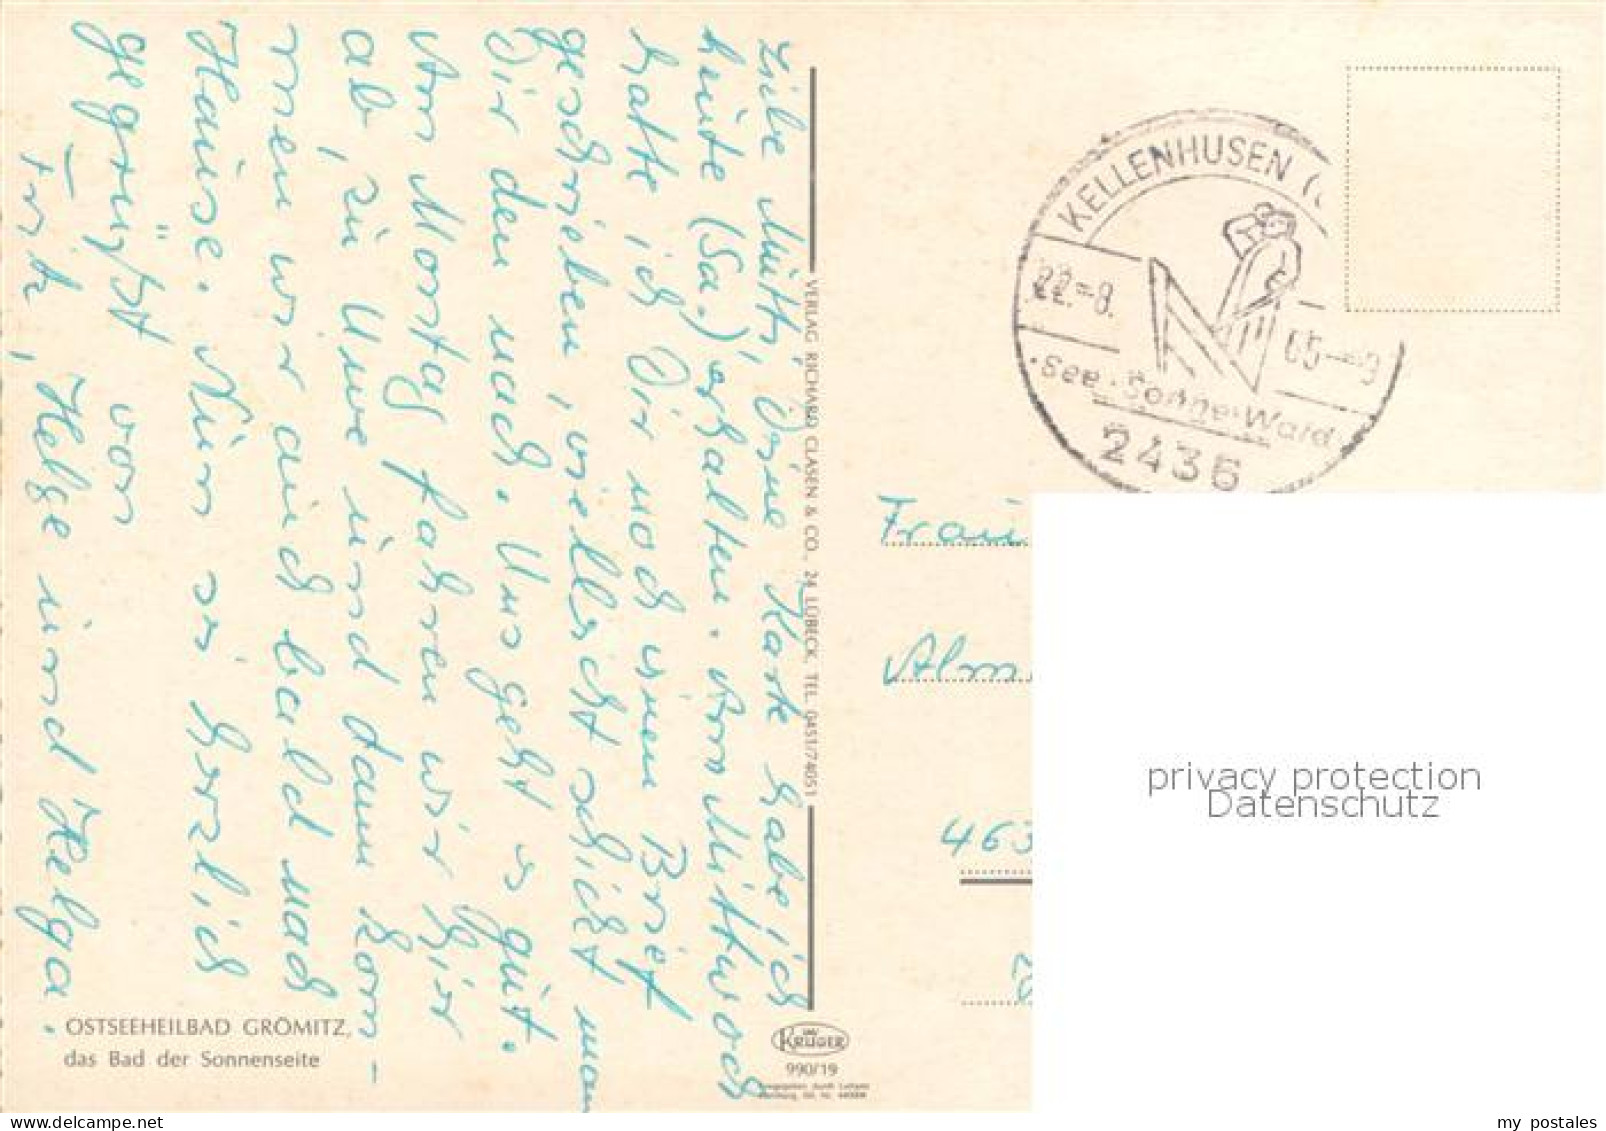 Liebe Mutti, Deine Karte habe ich
heute (Sa.) erhalten. Am Mittwoch
hatte ich Dir noch einen Brief
geschrieben, vielleicht schickt man
Dir den nach. Uns geht es gut.
Am Montag fahren wir hier
ab, zu Uwe und dann kom-
men wir auch bald nach
Hause. Nun sei herzlich
gegrüßt von
Erik, Helge und Helga.
VERLAG RICHARD CLASEN & CO., 24 LÜBECK, TEL. 0451/74051
OSTSEEHEILBAD GRÖMITZ,
das Bad der Sonnenseite
KRÜGER
990/19
KELLENHUSEN (
22.-8. 65--9
·See·Sonne·Wald
2436
Frau
463
privacy protection
Datenschutz
my postales